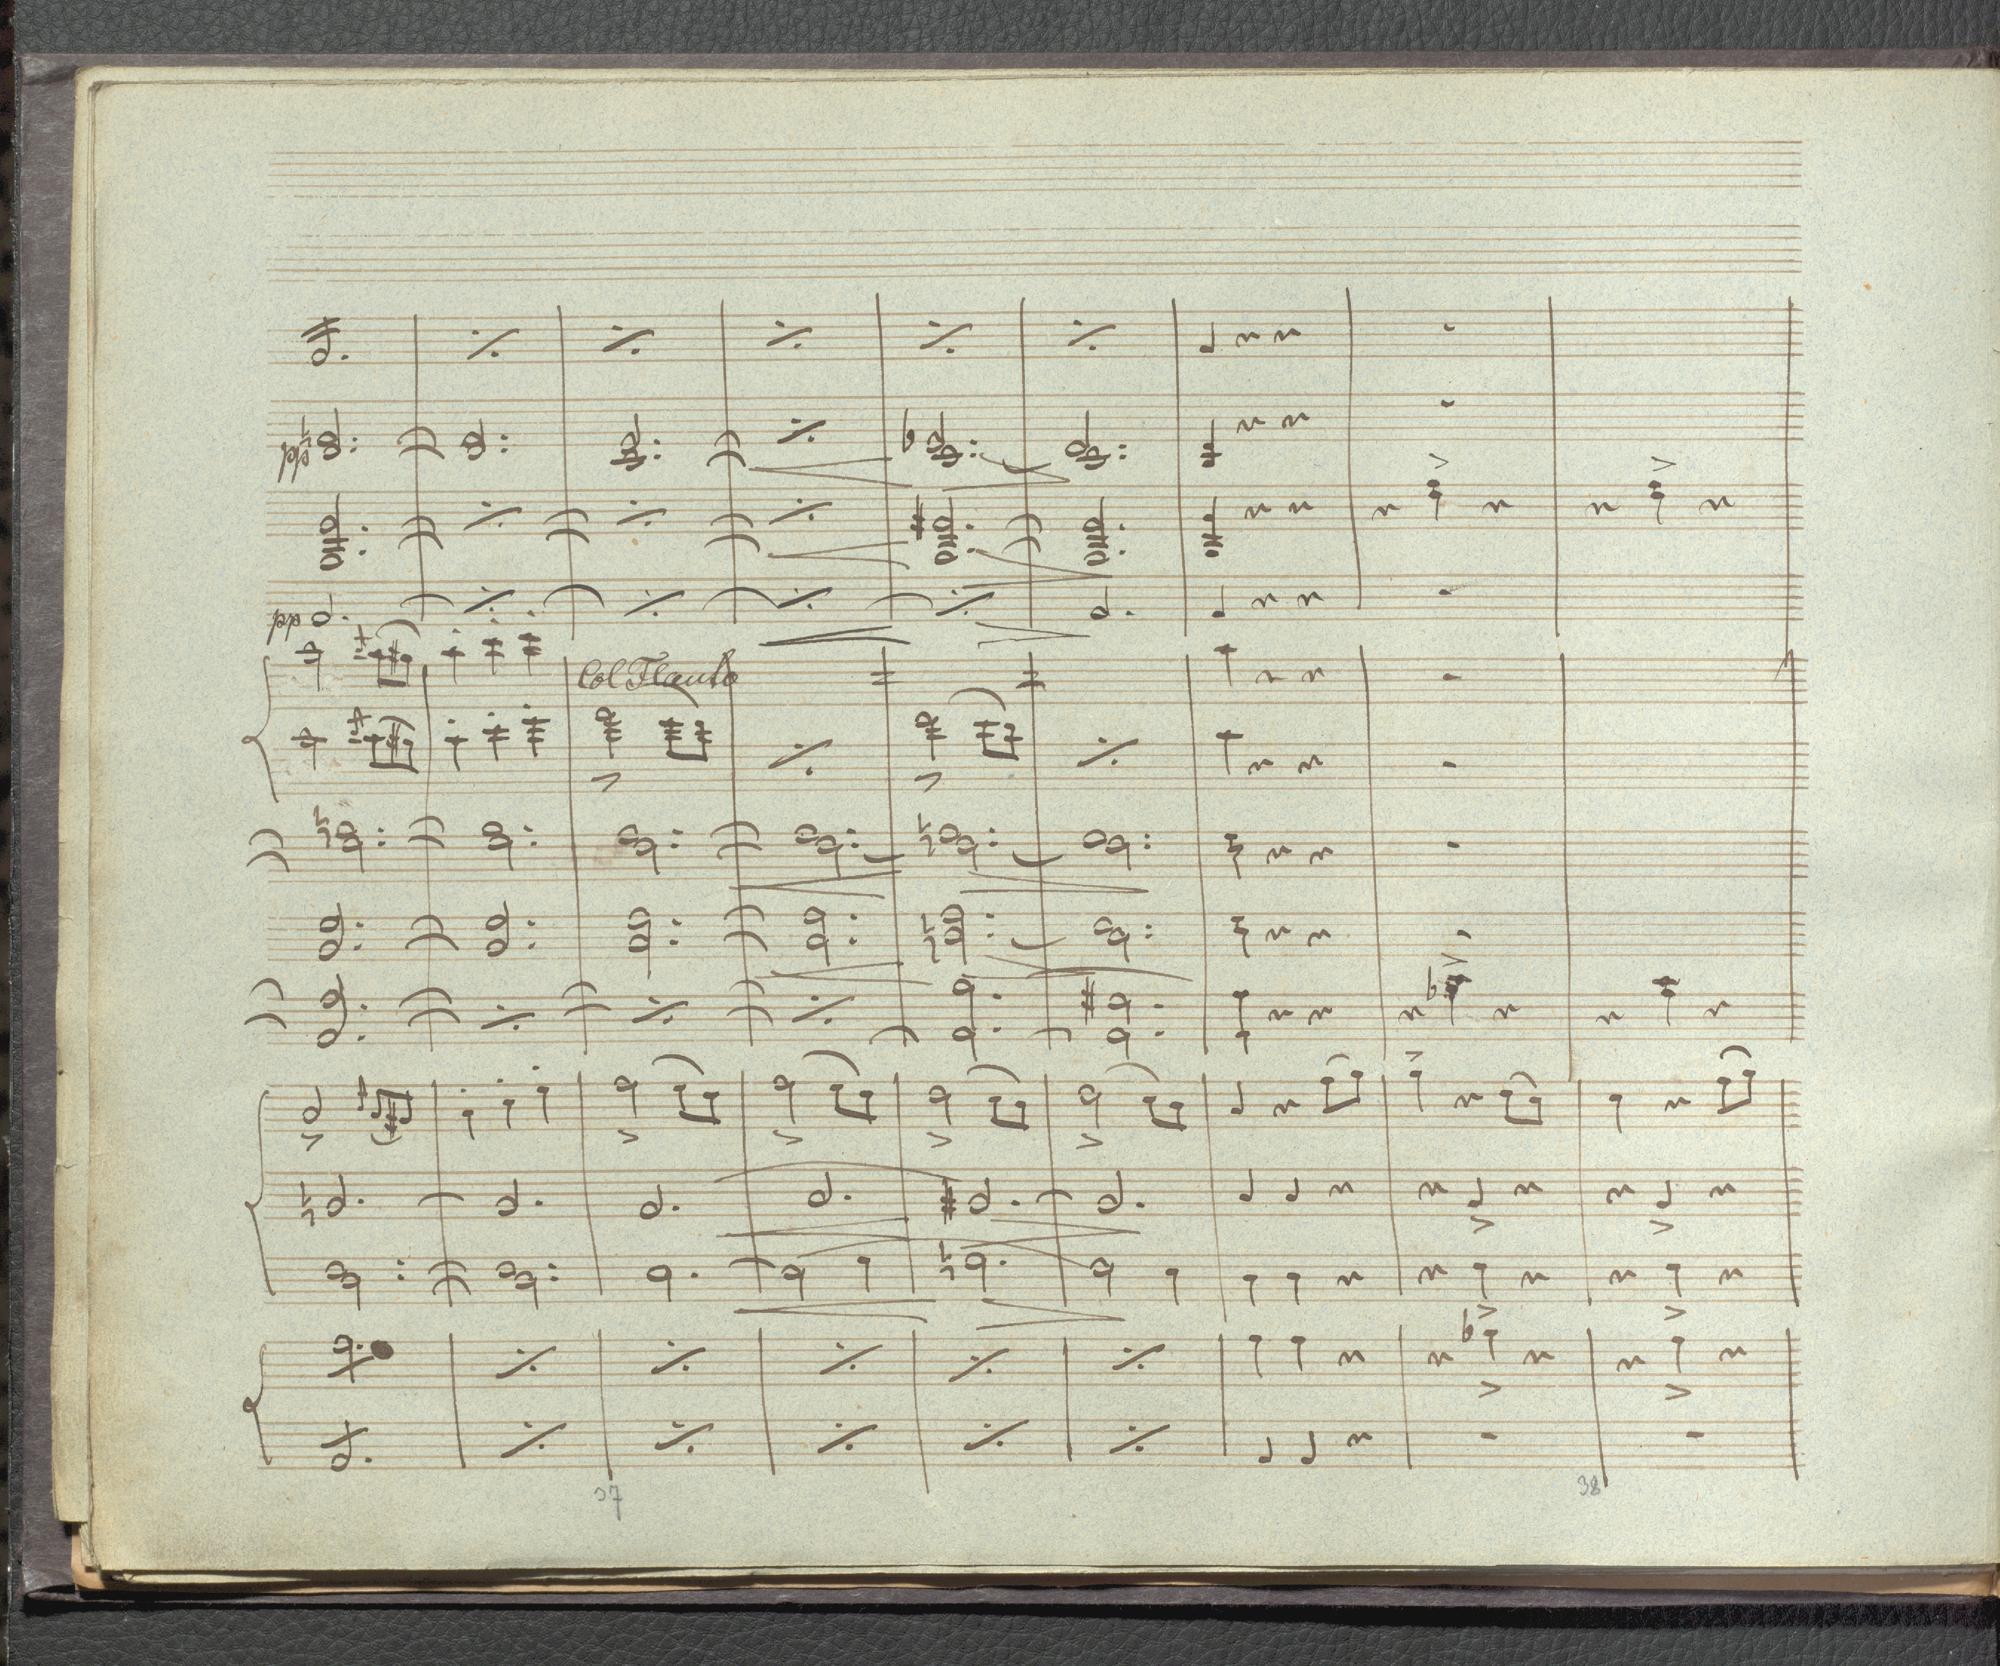 pp
pp
Col Flauto
37
38